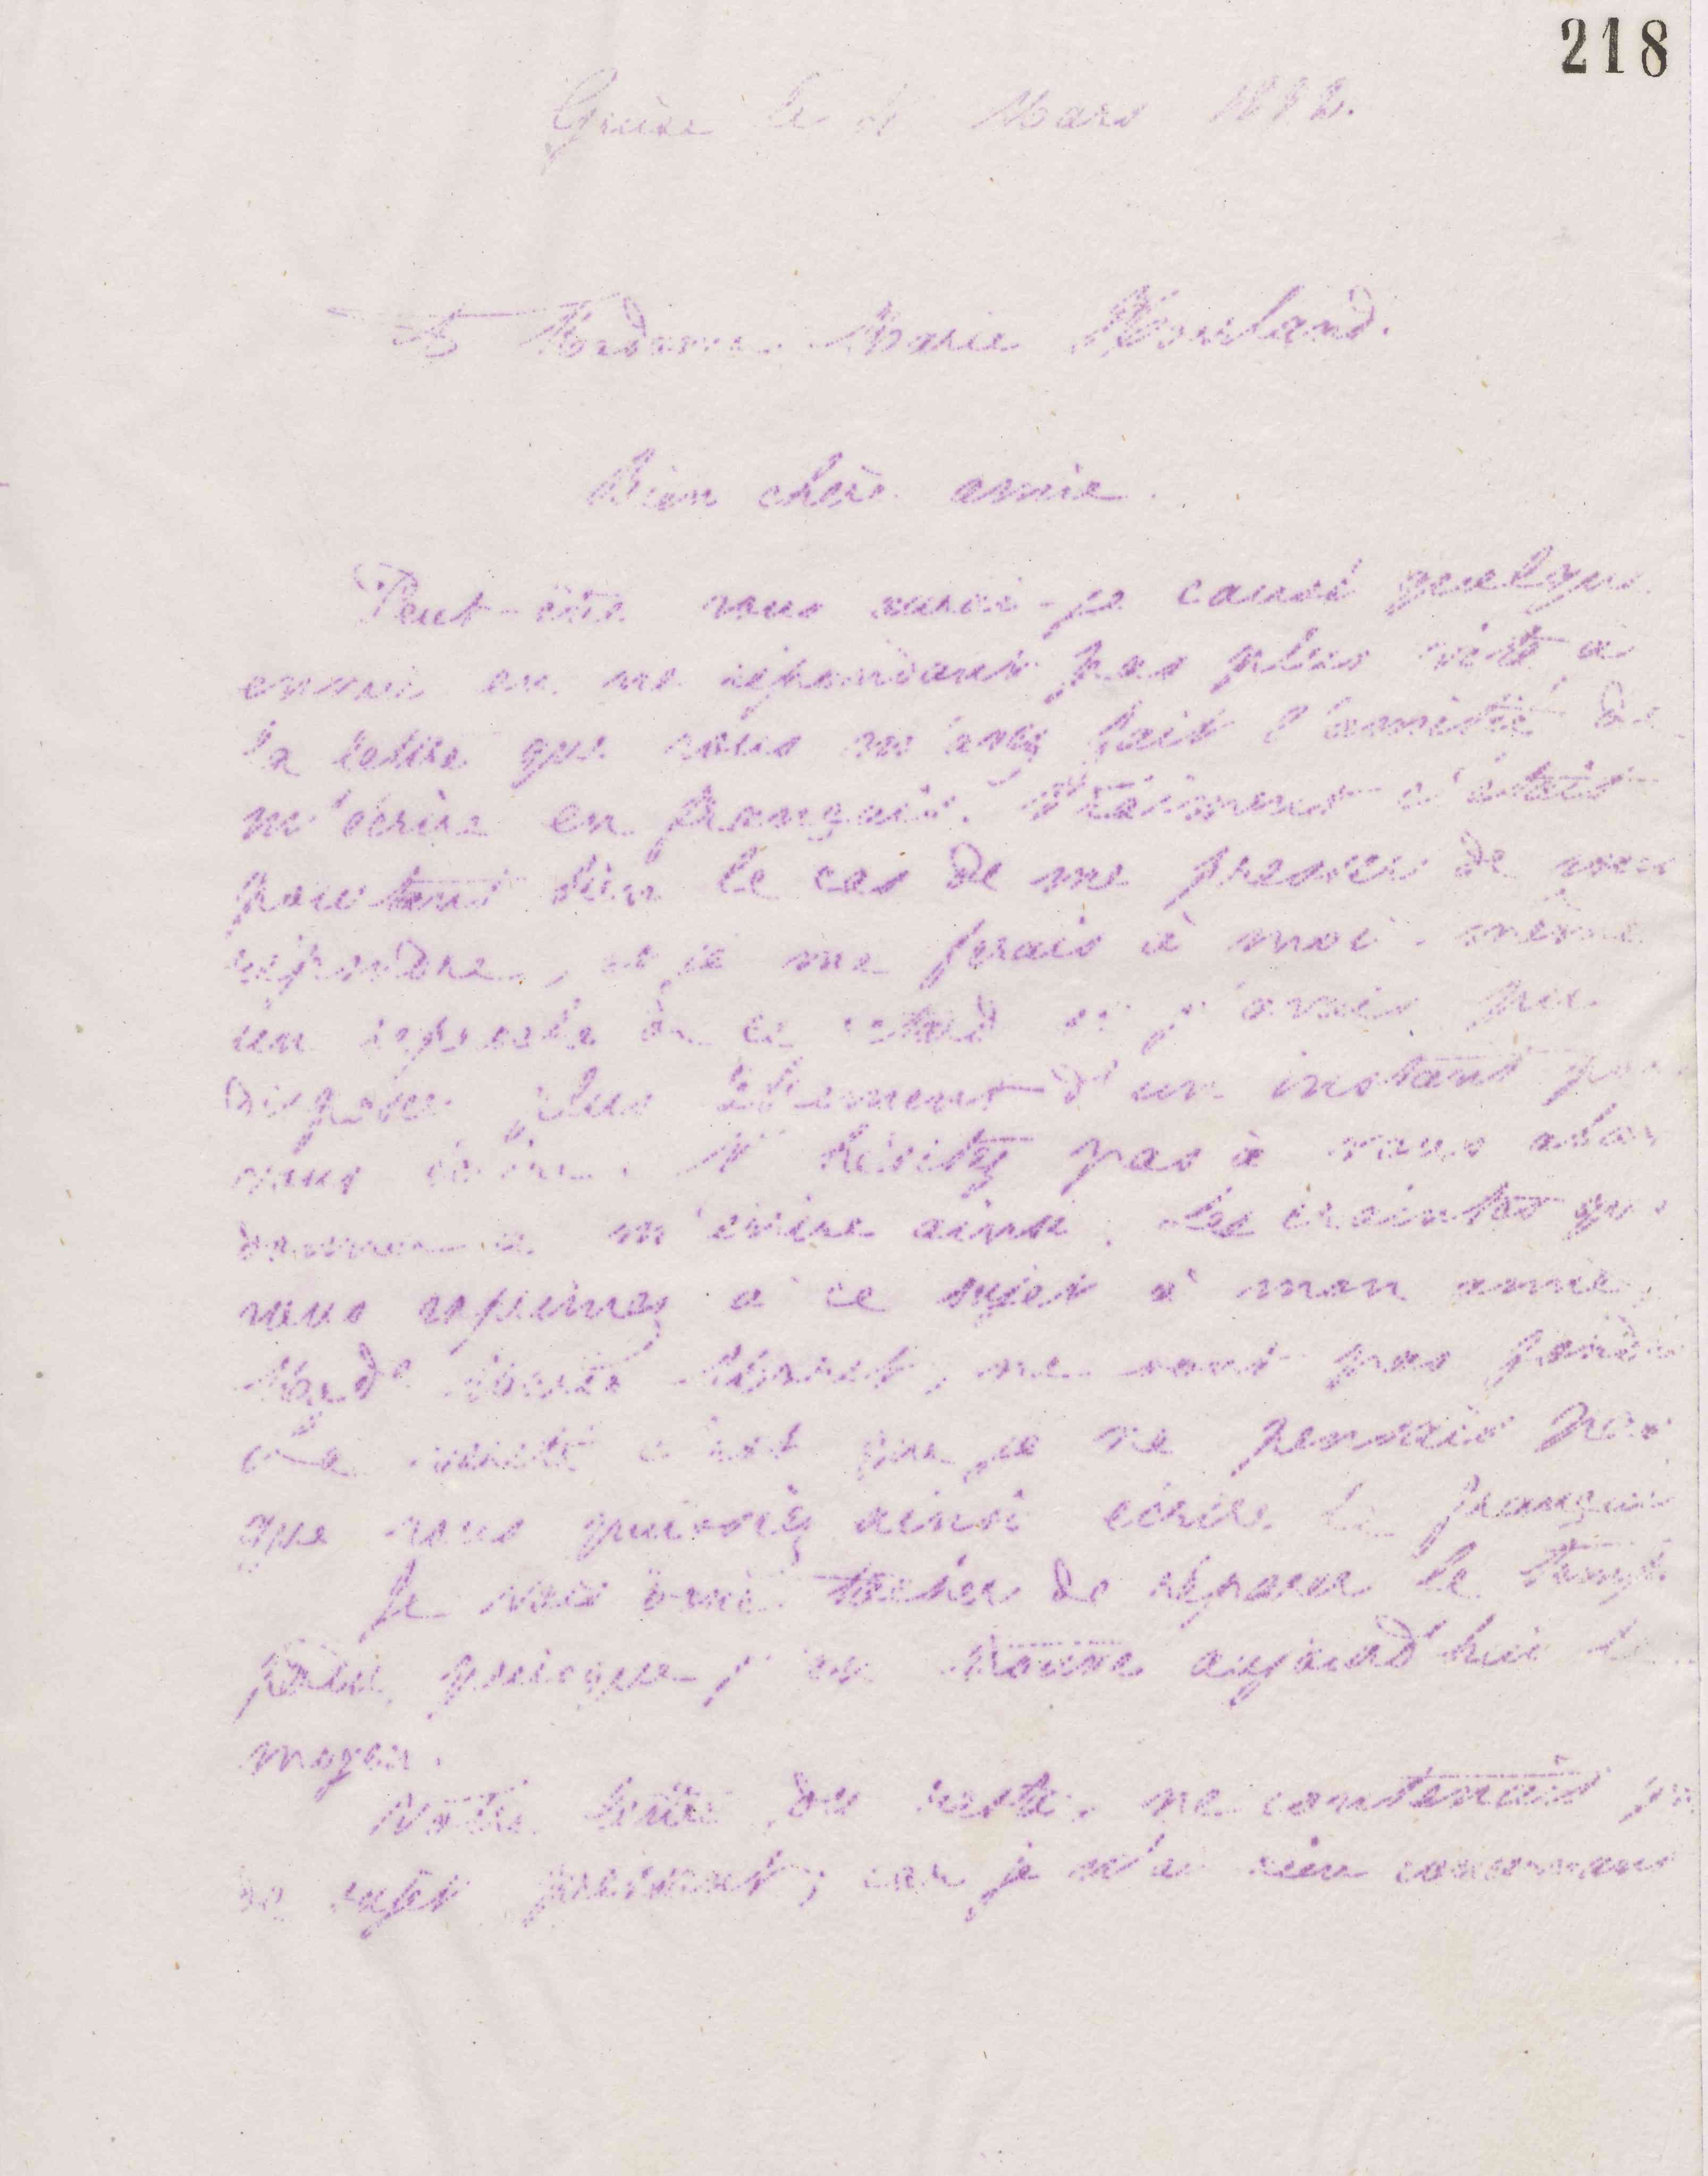 218
Guise le 4 Mars 1892.
A Madame Marie Howland.
Bien chère amie.
Peut-être vous aurai-je causé quelque
ennui en ne répondant pas plus vite à
la lettre que vous m'avez fait l'amitié de
m'écrire en français. Vraiment c'était
pourtant bien le cas de me presser de vous
répondre, et je me ferais à moi-même
un reproche de ce retard si j'avais pu
disposer plus tôt d'un instant pour
vous écrire. N'hésitez pas à vous aban
donner à m'écrire ainsi. Les craintes que
vous exprimez à ce sujet à mon amie,
Madᵉ Marie Moret, ne sont pas fondées
La vérité c'est que je ne pensais pas
que vous puissiez ainsi écrire le français
Je vais donc tâcher de réparer le temps
perdu, puisque j'en trouve aujourd'hui le
moyen.
Votre lettre, du reste, ne contenait pas
de sujet pressant; car je n'ai rien concernant